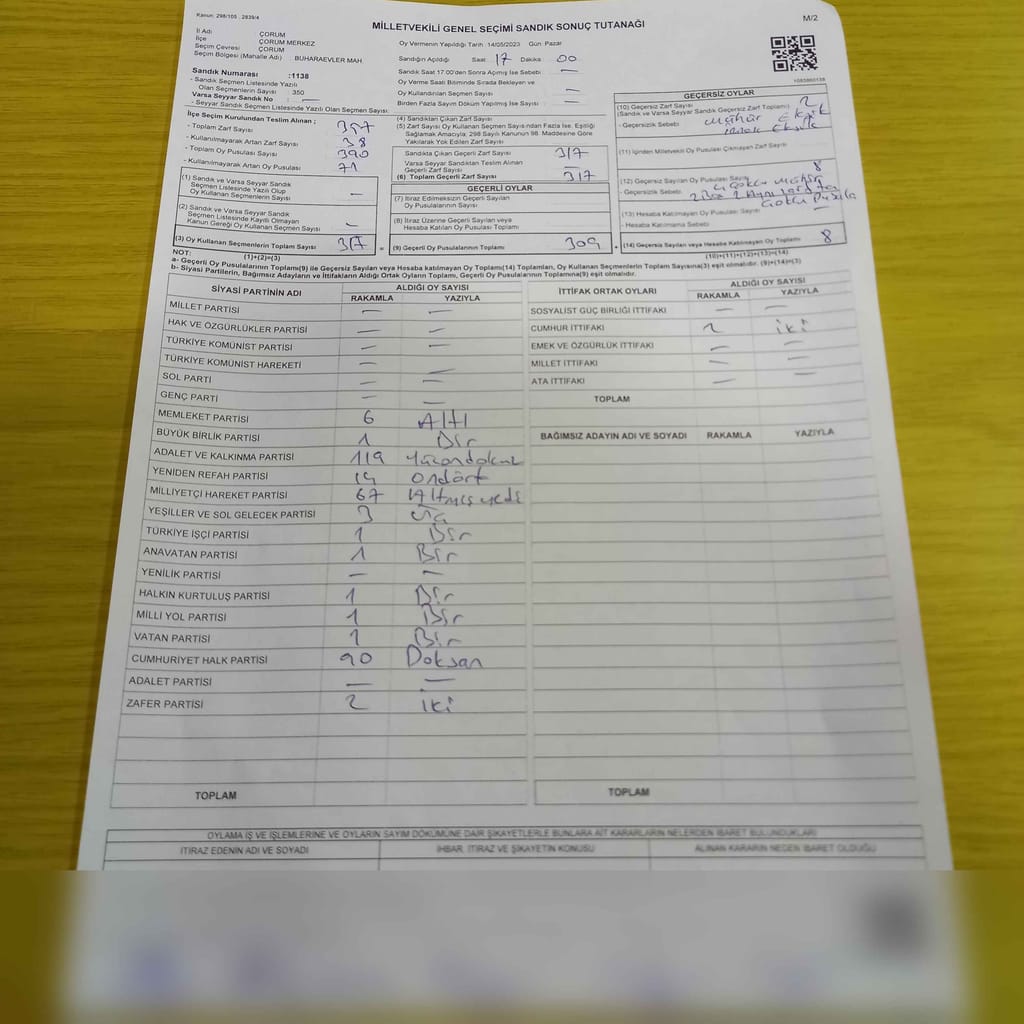 Kanun: 298/105 , 2839/4
MİLLETVEKİLİ GENEL SEÇİMİ SANDIK SONUÇ TUTANAĞI
M/2
İl Adı : ÇORUM
İlçe : ÇORUM MERKEZ
Seçim Çevresi : ÇORUM
Seçim Bölgesi (Mahalle Adı) : BUHARAEVLER MAH.
Sandık Numarası :1138
- Sandık Seçmen Listesinde Yazılı
Olan Seçmenlerin Sayısı : 350
Varsa Seyyar Sandık No : —
- Seyyar Sandık Seçmen Listesinde Yazılı Olan Seçmen Sayısı:
Oy Vermenin Yapıldığı Tarih :14/05/2023 Gün: Pazar
Sandığın Açıldığı Saat: 17 Dakika: 00
Sandık Saat 17.00'den Sonra Açılmış İse Sebebi : —
Oy Verme Saati Bitiminde Sırada Bekleyen ve
Oy Kullandırılan Seçmen Sayısı : —
Birden Fazla Sayım Döküm Yapılmış İse Sayısı : —
1083860138
İlçe Seçim Kurulundan Teslim Alınan ;
- Toplam Zarf Sayısı : 357
- Kullanılmayarak Artan Zarf Sayısı : 38
- Toplam Oy Pusulası Sayısı : 390
- Kullanılmayarak Artan Oy Pusulası : 71
(1) Sandık ve Varsa Seyyar Sandık
Seçmen Listesinde Yazılı Olup
Oy Kullanan Seçmenlerin Sayısı —
(2) Sandık ve Varsa Seyyar Sandık
Seçmen Listesinde Kayıtlı Olmayan
Kanun Gereği Oy Kullanan Seçmen Sayısı —
(3) Oy Kullanan Seçmenlerin Toplam Sayısı 317
(1)+(2)=(3)
(4) Sandıktan Çıkan Zarf Sayısı
(5) Zarf Sayısı Oy Kullanan Seçmen Sayısından Fazla İse, Eşitliği
Sağlamak Amacıyla; 298 Sayılı Kanunun 98. Maddesine Göre
Yakılarak Yok Edilen Zarf Sayısı
Sandıkta Çıkan Geçerli Zarf Sayısı 317
Varsa Seyyar Sandıktan Teslim Alınan
Geçerli Zarf Sayısı —
(6) Toplam Geçerli Zarf Sayısı 317
GEÇERLİ OYLAR
(7) İtiraz Edilmeksizin Geçerli Sayılan
Oy Pusulalarının Sayısı
(8) İtiraz Üzerine Geçerli Sayılan veya
Hesaba Katılan Oy Pusulası Toplamı
= (9) Geçerli Oy Pusulalarının Toplamı 309
GEÇERSİZ OYLAR
(10) Geçersiz Zarf Sayısı 2
(Sandık ve Varsa Seyyar Sandık Geçersiz Zarf Toplamı)
- Geçersizlik Sebebi : mühür Eksik
(11) İçinden Milletvekili Oy Pusulası Çıkmayan Zarf Sayısı
(12) Geçersiz Sayılan Oy Pusulası Sayısı 8
- Geçersizlik Sebebi :
(13) Hesaba Katılmayan Oy Pusulası Sayısı —
- Hesaba Katılmama Sebebi
+ (14) Geçersiz Sayılan veya Hesaba Katılmayan Oy Toplamı 8
(10)+(11)+(12)+(13)=(14)
NOT:
a- Geçerli Oy Pusulalarının Toplamı(9) ile Geçersiz Sayılan veya Hesaba katılmayan Oy Toplamı(14) Toplamları, Oy Kullanan Seçmenlerin Toplam Sayısına(3) eşit olmalıdır. (9)+(14)=(3)
b- Siyasi Partilerin, Bağımsız Adayların ve İttifakların Aldığı Ortak Oyların Toplamı, Geçerli Oy Pusulalarının Toplamına(9) eşit olmalıdır.
SİYASİ PARTİNİN ADI ALDIĞI OY SAYISI
RAKAMLA YAZIYLA
MİLLET PARTİSİ — —
HAK VE ÖZGÜRLÜKLER PARTİSİ — —
TÜRKİYE KOMÜNİST PARTİSİ — —
TÜRKİYE KOMÜNİST HAREKETİ — —
SOL PARTİ — —
GENÇ PARTİ — —
MEMLEKET PARTİSİ 6 Altı
BÜYÜK BİRLİK PARTİSİ 1 Bir
ADALET VE KALKINMA PARTİSİ 119 Yüzondokuz
YENİDEN REFAH PARTİSİ 14 Ondört
MİLLİYETÇİ HAREKET PARTİSİ 67 Altmışyedi
YEŞİLLER VE SOL GELECEK PARTİSİ 3 Üç
TÜRKİYE İŞÇİ PARTİSİ 1 Bir
ANAVATAN PARTİSİ 1 Bir
YENİLİK PARTİSİ — —
HALKIN KURTULUŞ PARTİSİ 1 Bir
MİLLİ YOL PARTİSİ 1 Bir
VATAN PARTİSİ 1 Bir
CUMHURİYET HALK PARTİSİ 90 Doksan
ADALET PARTİSİ — —
ZAFER PARTİSİ 2 iki
TOPLAM
İTTİFAK ORTAK OYLARI ALDIĞI OY SAYISI
RAKAMLA YAZIYLA
SOSYALİST GÜÇ BİRLİĞİ İTTİFAKI — —
CUMHUR İTTİFAKI 2 iki
EMEK VE ÖZGÜRLÜK İTTİFAKI — —
MİLLET İTTİFAKI — —
ATA İTTİFAKI — —
TOPLAM
BAĞIMSIZ ADAYIN ADI VE SOYADI RAKAMLA YAZIYLA
TOPLAM
OYLAMA İŞ VE İŞLEMLERİNE VE OYLARIN SAYIM DÖKÜMÜNE DAİR ŞİKAYETLERLE BUNLARA AİT KARARLARIN NELERDEN İBARET BULUNDUKLARI
İTİRAZ EDENİN ADI VE SOYADI İHBAR, İTİRAZ VE ŞİKAYETİN KONUSU ALINAN KARARIN NEDEN İBARET OLDUĞU